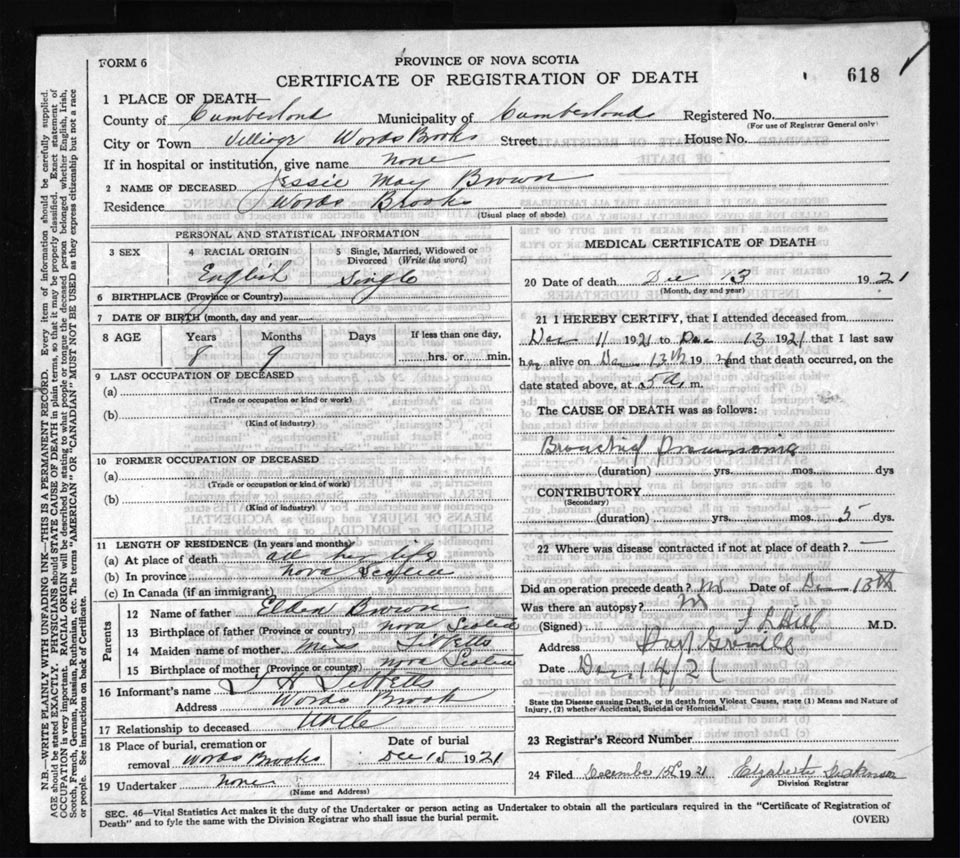 FORM 6
PROVINCE OF NOVA SCOTIA
CERTIFICATE OF REGISTRATION OF DEATH
618
1 PLACE OF DEATH—
County of Cumberland Municipality of Cumberland Registered No.
(For use of Registrar General only)
City or Town Village Words Brooks Street House No.
If in hospital or institution, give name none
2 NAME OF DECEASED Jessie May Brown
Residence Words Brooks
(Usual place of abode)
PERSONAL AND STATISTICAL INFORMATION
3 SEX 4 RACIAL ORIGIN 5 Single, Married, Widowed or Divorced (Write the word)
English Single
6 BIRTHPLACE (Province or Country)
7 DATE OF BIRTH (month, day and year)
8 AGE Years Months Days If less than one day,
8 9 hrs. or min.
9 LAST OCCUPATION OF DECEASED
(a)
(Trade or occupation or kind or work)
(b)
(Kind of industry)
10 FORMER OCCUPATION OF DECEASED
(a)
(Trade or occupation or kind of work)
(b)
(Kind of industry)
11 LENGTH OF RESIDENCE (In years and months)
(a) At place of death all her life
(b) In province Nova Scotia
(c) In Canada (if an immigrant)
Parents
12 Name of father Elden Brown
13 Birthplace of father (Province or country) Nova Scotia
14 Maiden name of mother Miss Tibbetts
15 Birthplace of mother (Province or country) Nova Scotia
16 Informant's name J H Tibbetts
Address Words Brook
17 Relationship to deceased Uncle
18 Place of burial, cremation or removal Words Brooks Date of burial Dec 15 1921
19 Undertaker none
(Name and Address)
MEDICAL CERTIFICATE OF DEATH
20 Date of death Dec 13 1921
(Month, day and year)
21 I HEREBY CERTIFY, that I attended deceased from
Dec 11 1921 to Dec 13 1921 that I last saw
her alive on Dec 13th 19 and that death occurred, on the
date stated above, at 5 a. m.
The CAUSE OF DEATH was as follows:
Bronchial Pneumonia
(duration) yrs. mos. dys
CONTRIBUTORY
(Secondary)
(duration) yrs. mos. 5 dys.
22 Where was disease contracted if not at place of death? —
Did an operation precede death? No Date of Dec 13th
Was there an autopsy? No
(Signed) M.D.
Address Port Greville
Date Dec 14/21
State the Disease causing Death, or in death from Violent Causes, state (1) Means and Nature of Injury, (2) whether Accidental, Suicidal or Homicidal.
23 Registrar's Record Number
24 Filed December 15th 1921 Elizabeth Dickinson
Division Registrar
SEC. 46—Vital Statistics Act makes it the duty of the Undertaker or person acting as Undertaker to obtain all the particulars required in the "Certificate of Registration of
Death" and to fyle the same with the Division Registrar who shall issue the burial permit.
(OVER)
N.B.—WRITE PLAINLY WITH UNFADING INK—THIS IS A PERMANENT RECORD. Every item of information should be carefully supplied.
AGE should be stated EXACTLY. PHYSICIANS should STATE CAUSE OF DEATH in plain terms, so that it may be properly classified. Exact statement of
OCCUPATION is very important. RACIAL ORIGIN will be described by stating to what people or tongue the deceased person belonged, whether English, Irish,
Scotch, French, German, Russian, Ruthenian, etc. The terms "AMERICAN" or "CANADIAN" MUST NOT BE USED as they express citizenship but not a race
or people. See instructions on back of Certificate.